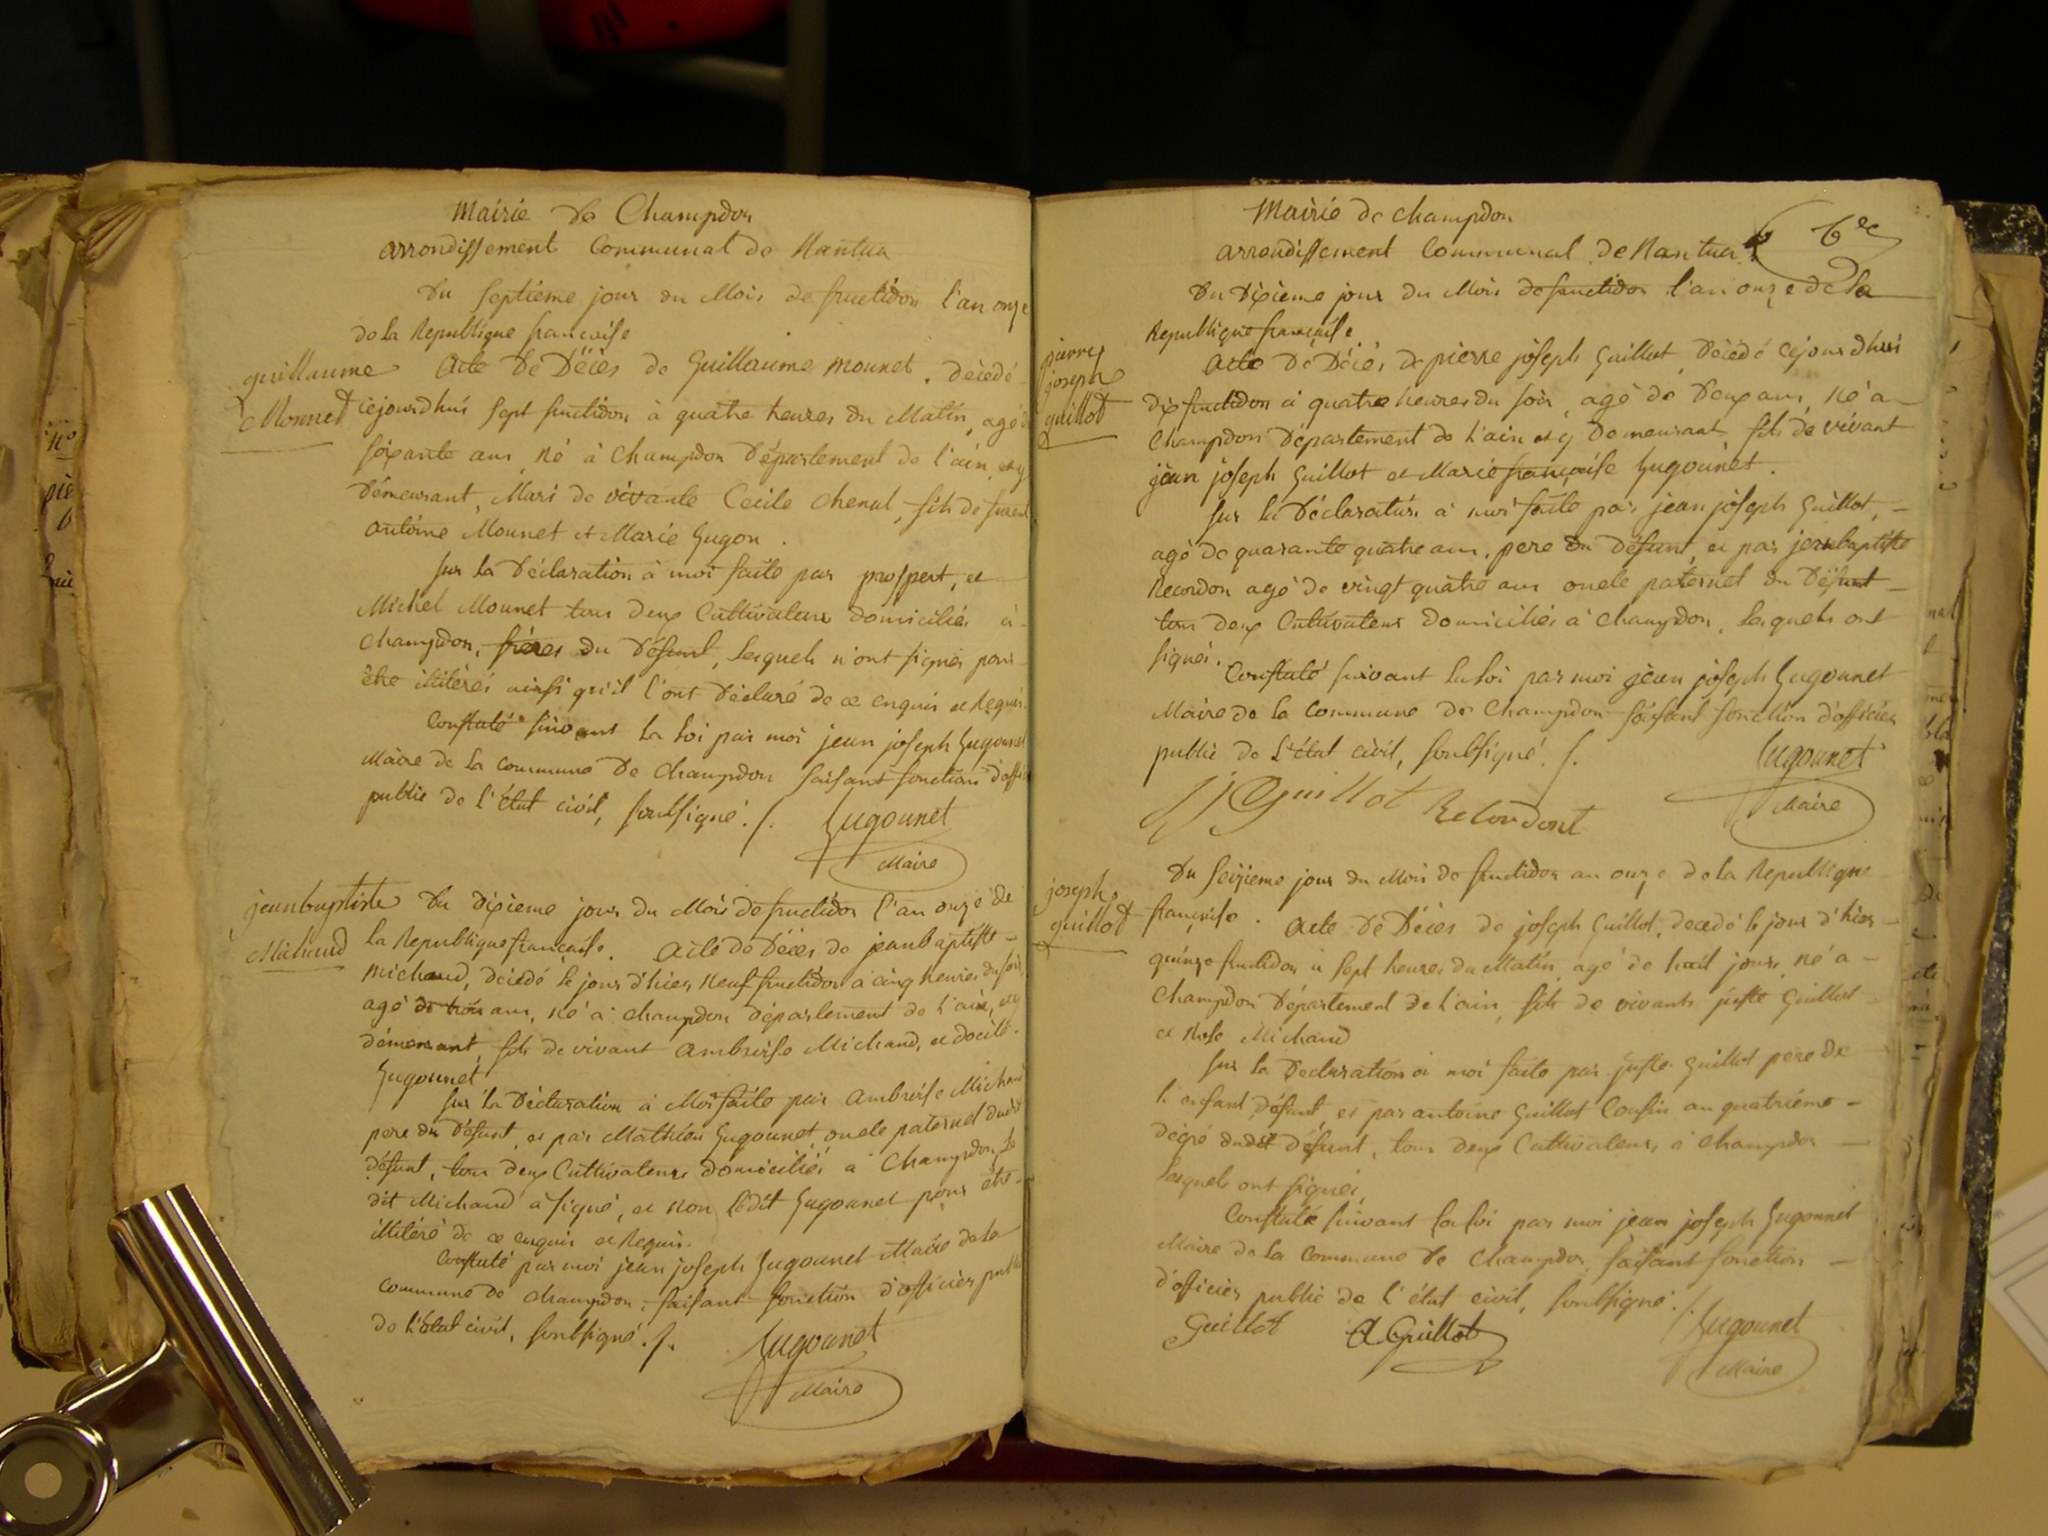 Mairie de Champdor
arrondissement Communal de Nantua
Du septieme jour du Mois de fructidor l'an onze
de la Republique francaise
guillaume
Monnet
Acte De Déces de Guillaume Mounet. décédé
cejourdhui sept fructidor à quatre heures du Matin, agé de
soixante ans, né à Champdor Département de l'ain, et y
démeurant, Mari de vivante Cecile Chenal, fils de furent
antoine Mounet et Marie Gugon.
Sur la Déclaration à moi faite par prospert, et
Michel Mounet tous deux Cultivateurs domiciliés à
Champdor, freres du Défunt, Lesquels n'ont signés pour
être illiterés ainsi qu'il l'ont Déclaré de ce enquis et Requis.
Constaté suivant la Loi par moi jean joseph Gugounet
Maire de la commune De Champdor faisant fonction d'officier
public de l'état civil, soussigné. /.
Gugounet
Maire
jeanbaptiste
Michaud
Du dixieme jour du Mois de fructidor l'an onze de
la Republique francaise. Acte de Déces de jeanbaptiste
Michaud, décédé le jour d'hier, neuf fructidor à cinq heures du soir,
agé de trois ans, né à champdor département de l'ain, et y
démeurant, fils de vivant Ambroise Michaud, et
Gugounet
Sur la Déclaration à Moi faite par Ambroise Michaud
pere du Défunt, et par Mathieu Gugounet, oncle paternel dudit
défunt, tous deux Cultivateurs domiciliés à Champdor, Le
dit Michaud à signé, et non ledit Gugounet pour être
illiteré de ce enquis et Requis.
Constaté par moi jean joseph Gugounet Maire de la
commune de champdor, faisant fonction d'officier public
de l'état civil, soussigné. /.
Gugounet
Maire
Mairie de champdor
6e
arrondissement Communal de Nantua
Du Dixieme jour du Mois de fructidor l'an onze de la
Republique française
pierre
joseph
guillot
Acte De Déces de pierre joseph Guillot, Décédé cejourdhui
dix fructidor à quatre heures du soir, agé de Deux ans, Né à
Champdor Département de l'ain et y Demeurant, fils de vivant
jean joseph Guillot et Marie française Gugounet.
Sur la Déclaration à moi faite par jean joseph Guillot,
agé de quarante quatre ans, pere du défunt, et par jeanbaptiste
Recordon agé de vingt quatre ans oncle paternel du Défunt
tous deux Cultivateurs domiciliés à champdor, Lesquels ont
signés.
Constaté suivant la Loi par moi jean joseph Gugounet
Maire de la commune de Champdor faisant fonction d'officier
public de l'état civil, soussigné. /.
Gugounet
Maire
JJ Guillot Recordont
joseph
guillot
Du seizieme jour du Mois de fructidor an onze de la Republique
française. Acte De Déces de joseph Guillot, decedé le jour d'hier
quinze fructidor à sept heures du Matin, agé de huit jours, né à
Champdor Département de l'ain, fils de vivants juste Guillot
et Rose Michaud
Sur la Déclaration à moi faite par juste Guillot pere de
l'enfant défunt, et par antoine Guillot Cousin au quatriéme
dégré dudit défunt, tous deux Cultivateurs à Champdor
Lesquels ont signés,
Constaté suivant la Loi par moi jean joseph Gugounet
Maire de la commune de Champdor, faisant fonction
d'officier public de l'état civil, soussigné. /.
Guillot A Guillot Gugounet
Maire